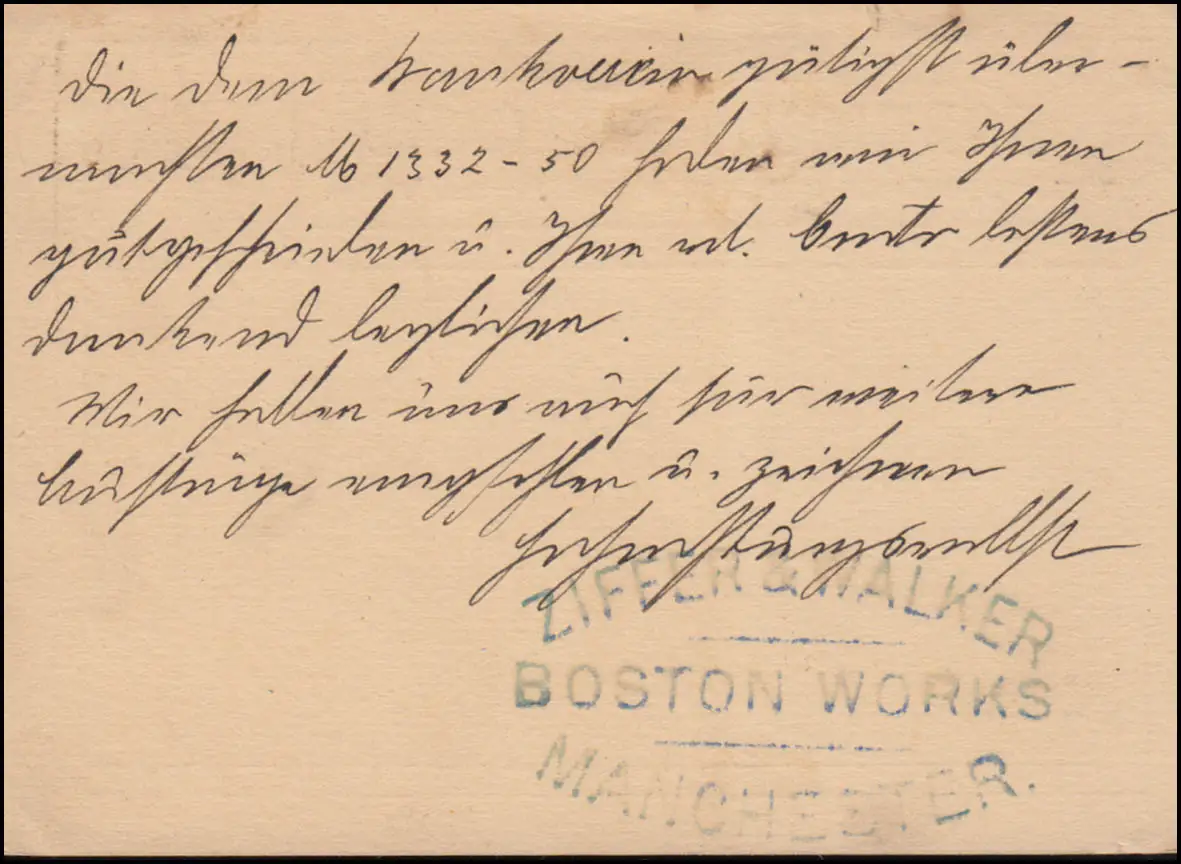 Die dem Bankverein gütigst über-
machten M 1332-50 haben wir Ihnen
gutgeschrieben u. Ihnen bestens
dankend beglichen.
Wir halten uns auch für weitere
Aufträge empfohlen u. zeichnen
Hochachtungsvollst
ZIFFER & WALKER
BOSTON WORKS
MANCHESTER.